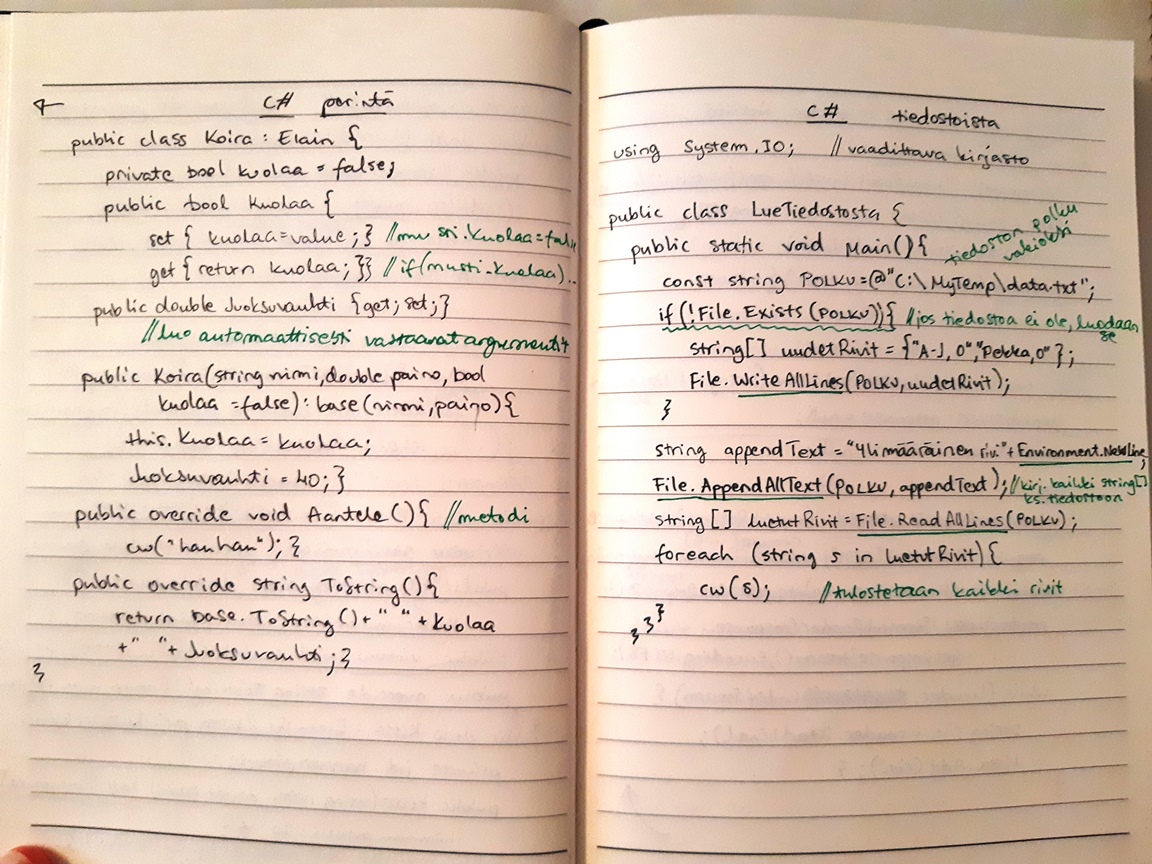 C# perintä
public class Koira : Elain {
private bool kuolaa = false;
public bool Kuolaa {
set { kuolaa=value ; }
get { return kuolaa; }} // if(musti.Kuolaa)..
public double Juoksuvauhti {get; set;}
//luo automaattisesti vastaavat argumentit
public Koira(string nimi, double paino, bool
kuolaa = false) : base(nimi, paino) {
this.Kuolaa = kuolaa;
Juoksuvauhti = 40; }
public override void Aantele () { //metodi
cw("hauhau"); }
public override string ToString() {
return base.ToString() + " " + Kuolaa
+ " " + Juoksuvauhti ; }
}
C# tiedostoista
using System.IO; // vaadittava kirjasto
public class LueTiedostosta {
public static void Main() { tiedoston polku
vakioksi
const string POLKU=@"C:\MyTemp\data.txt";
if (!File.Exists(POLKU)) { //jos tiedostoa ei ole, luodaan
se
string[] uudetRivit = {"A-J, 0","Pekka,0" };
File.WriteAllLines(POLKU, uudetRivit);
}
string appendText = "Ylimääräinen rivi" + Environment.NewLine;
File.AppendAllText(POLKU, appendText); //kirj. kaikki string[]
ks. tiedostoon
string[] luetutRivit = File.ReadAllLines(POLKU);
foreach (string s in luetutRivit) {
cw(s); //tulostetaan kaikki rivit
}}}